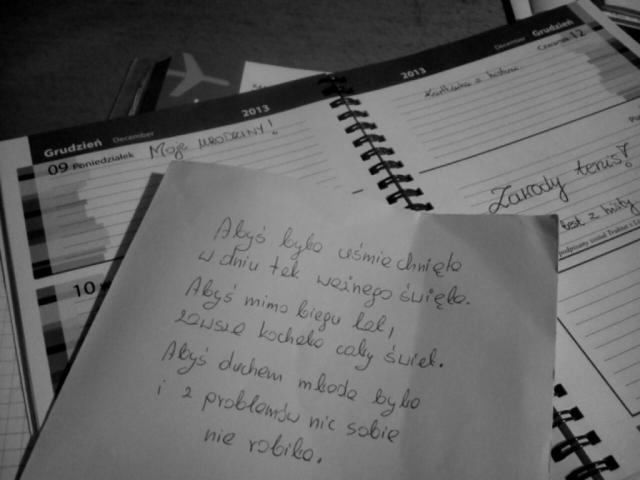 Grudzień December 2013
09 Poniedziałek Moje URODZINY!
10
2013 December Grudzień
Czwartek 12
Kartkówka z
Zawody tenis?
test z
podpisany układ Traktat o
Abyś była uśmiechnięta
w dniu tak ważnego święta.
Abyś mimo biegu lat,
zawsze kochała cały świat.
Abyś duchem młoda była
i z problemów nic sobie
nie robiła.